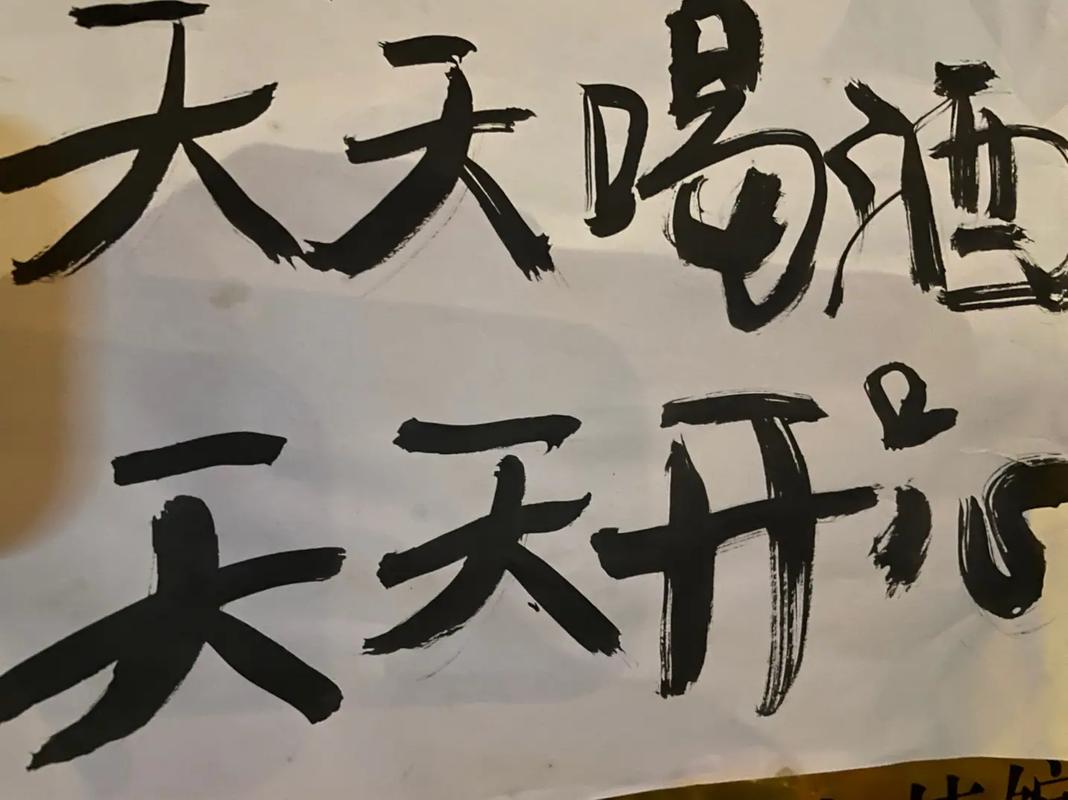 天天喝酒
天天开心